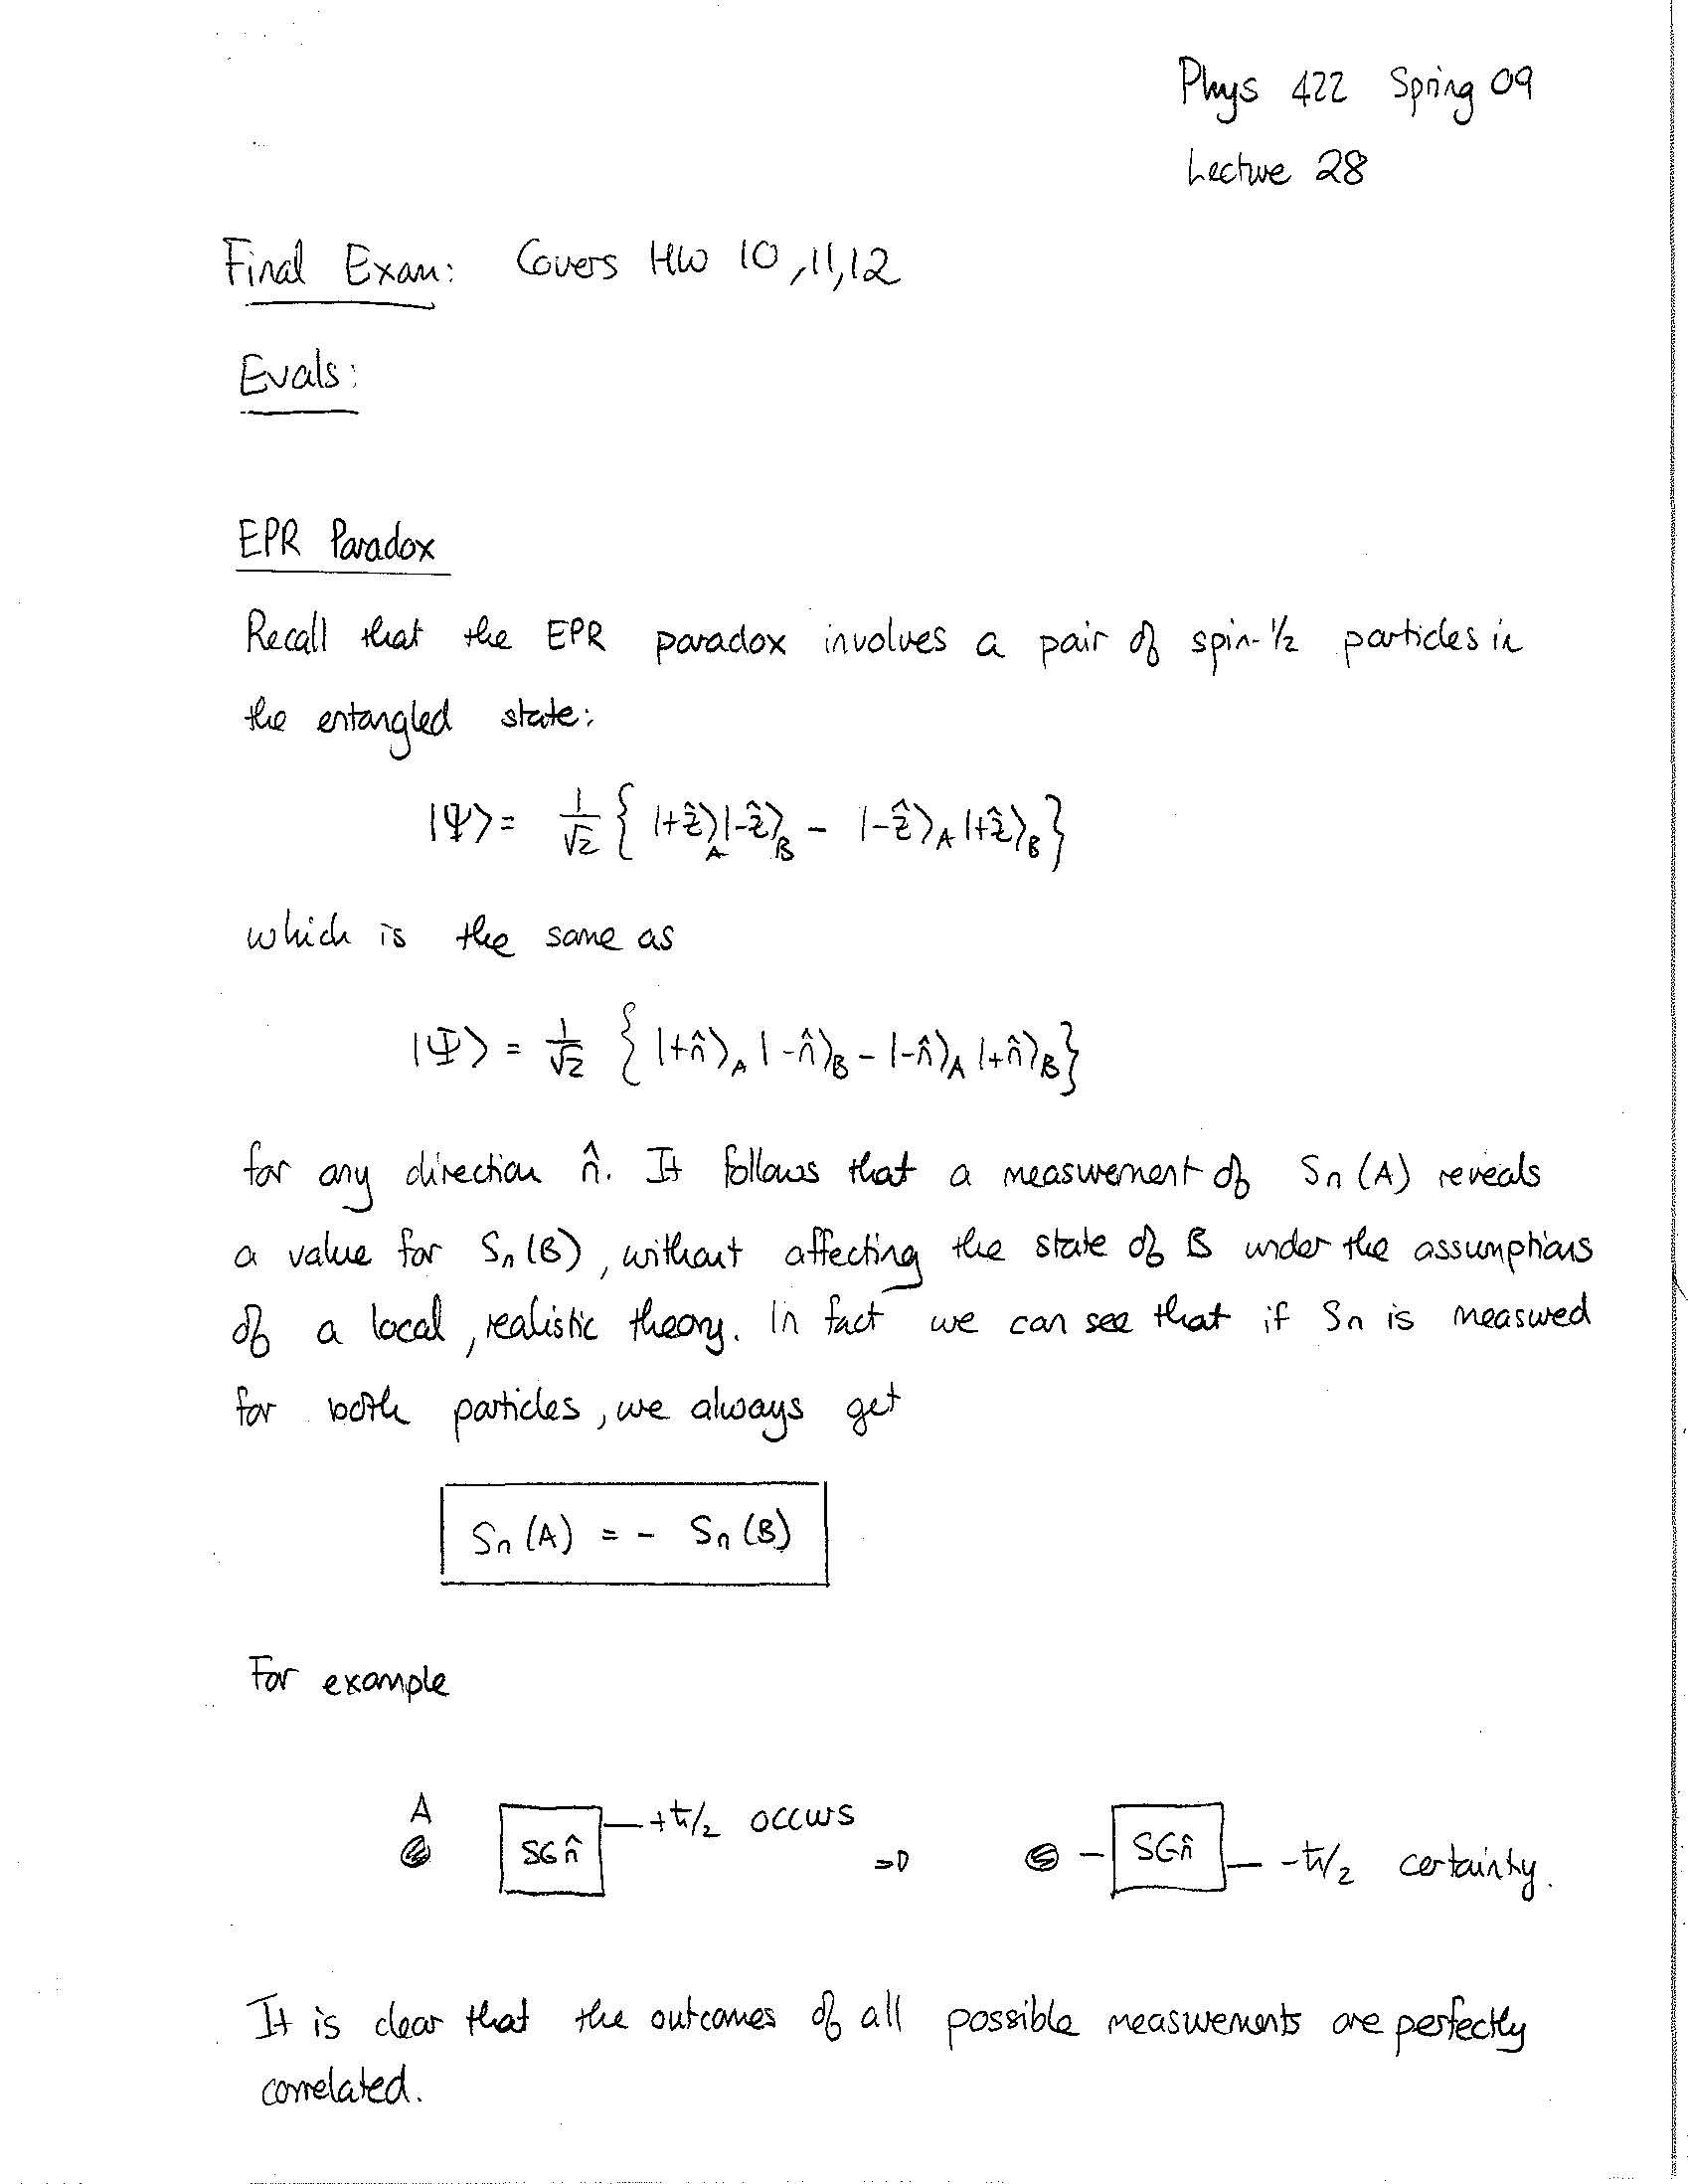 Phys 422 Spring 09
Lecture 28
Final Exam: Covers HW 10, 11, 12
Evals:
EPR Paradox
Recall that the EPR paradox involves a pair of spin-1/2 particles in
the entangled state:
|Ψ⟩ = 1/√2 { |+ẑ⟩_A |-ẑ⟩_B - |-ẑ⟩_A |+ẑ⟩_B }
which is the same as
|Ψ⟩ = 1/√2 { |+n̂⟩_A |-n̂⟩_B - |-n̂⟩_A |+n̂⟩_B }
for any direction n̂. It follows that a measurement of Sn (A) reveals
a value for Sn (B), without affecting the state of B under the assumptions
of a local, realistic theory. In fact we can see that if Sn is measured
for both particles, we always get
Sn (A) = - Sn (B)
For example
A SG n̂ +ħ/2 occurs ⇒ SG n̂ -ħ/2 certainty.
It is clear that the outcomes of all possible measurements are perfectly
correlated.